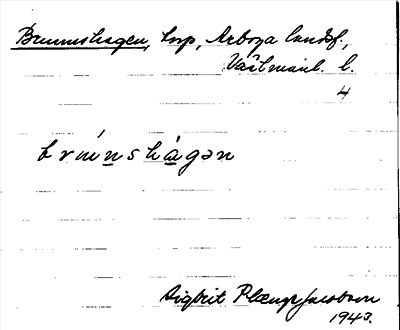 Brunnshagen, torp, Arboga landsf.,
Västmanl. l.
4
brunshagən
Sigbrit Plænge Jacobson
1943.